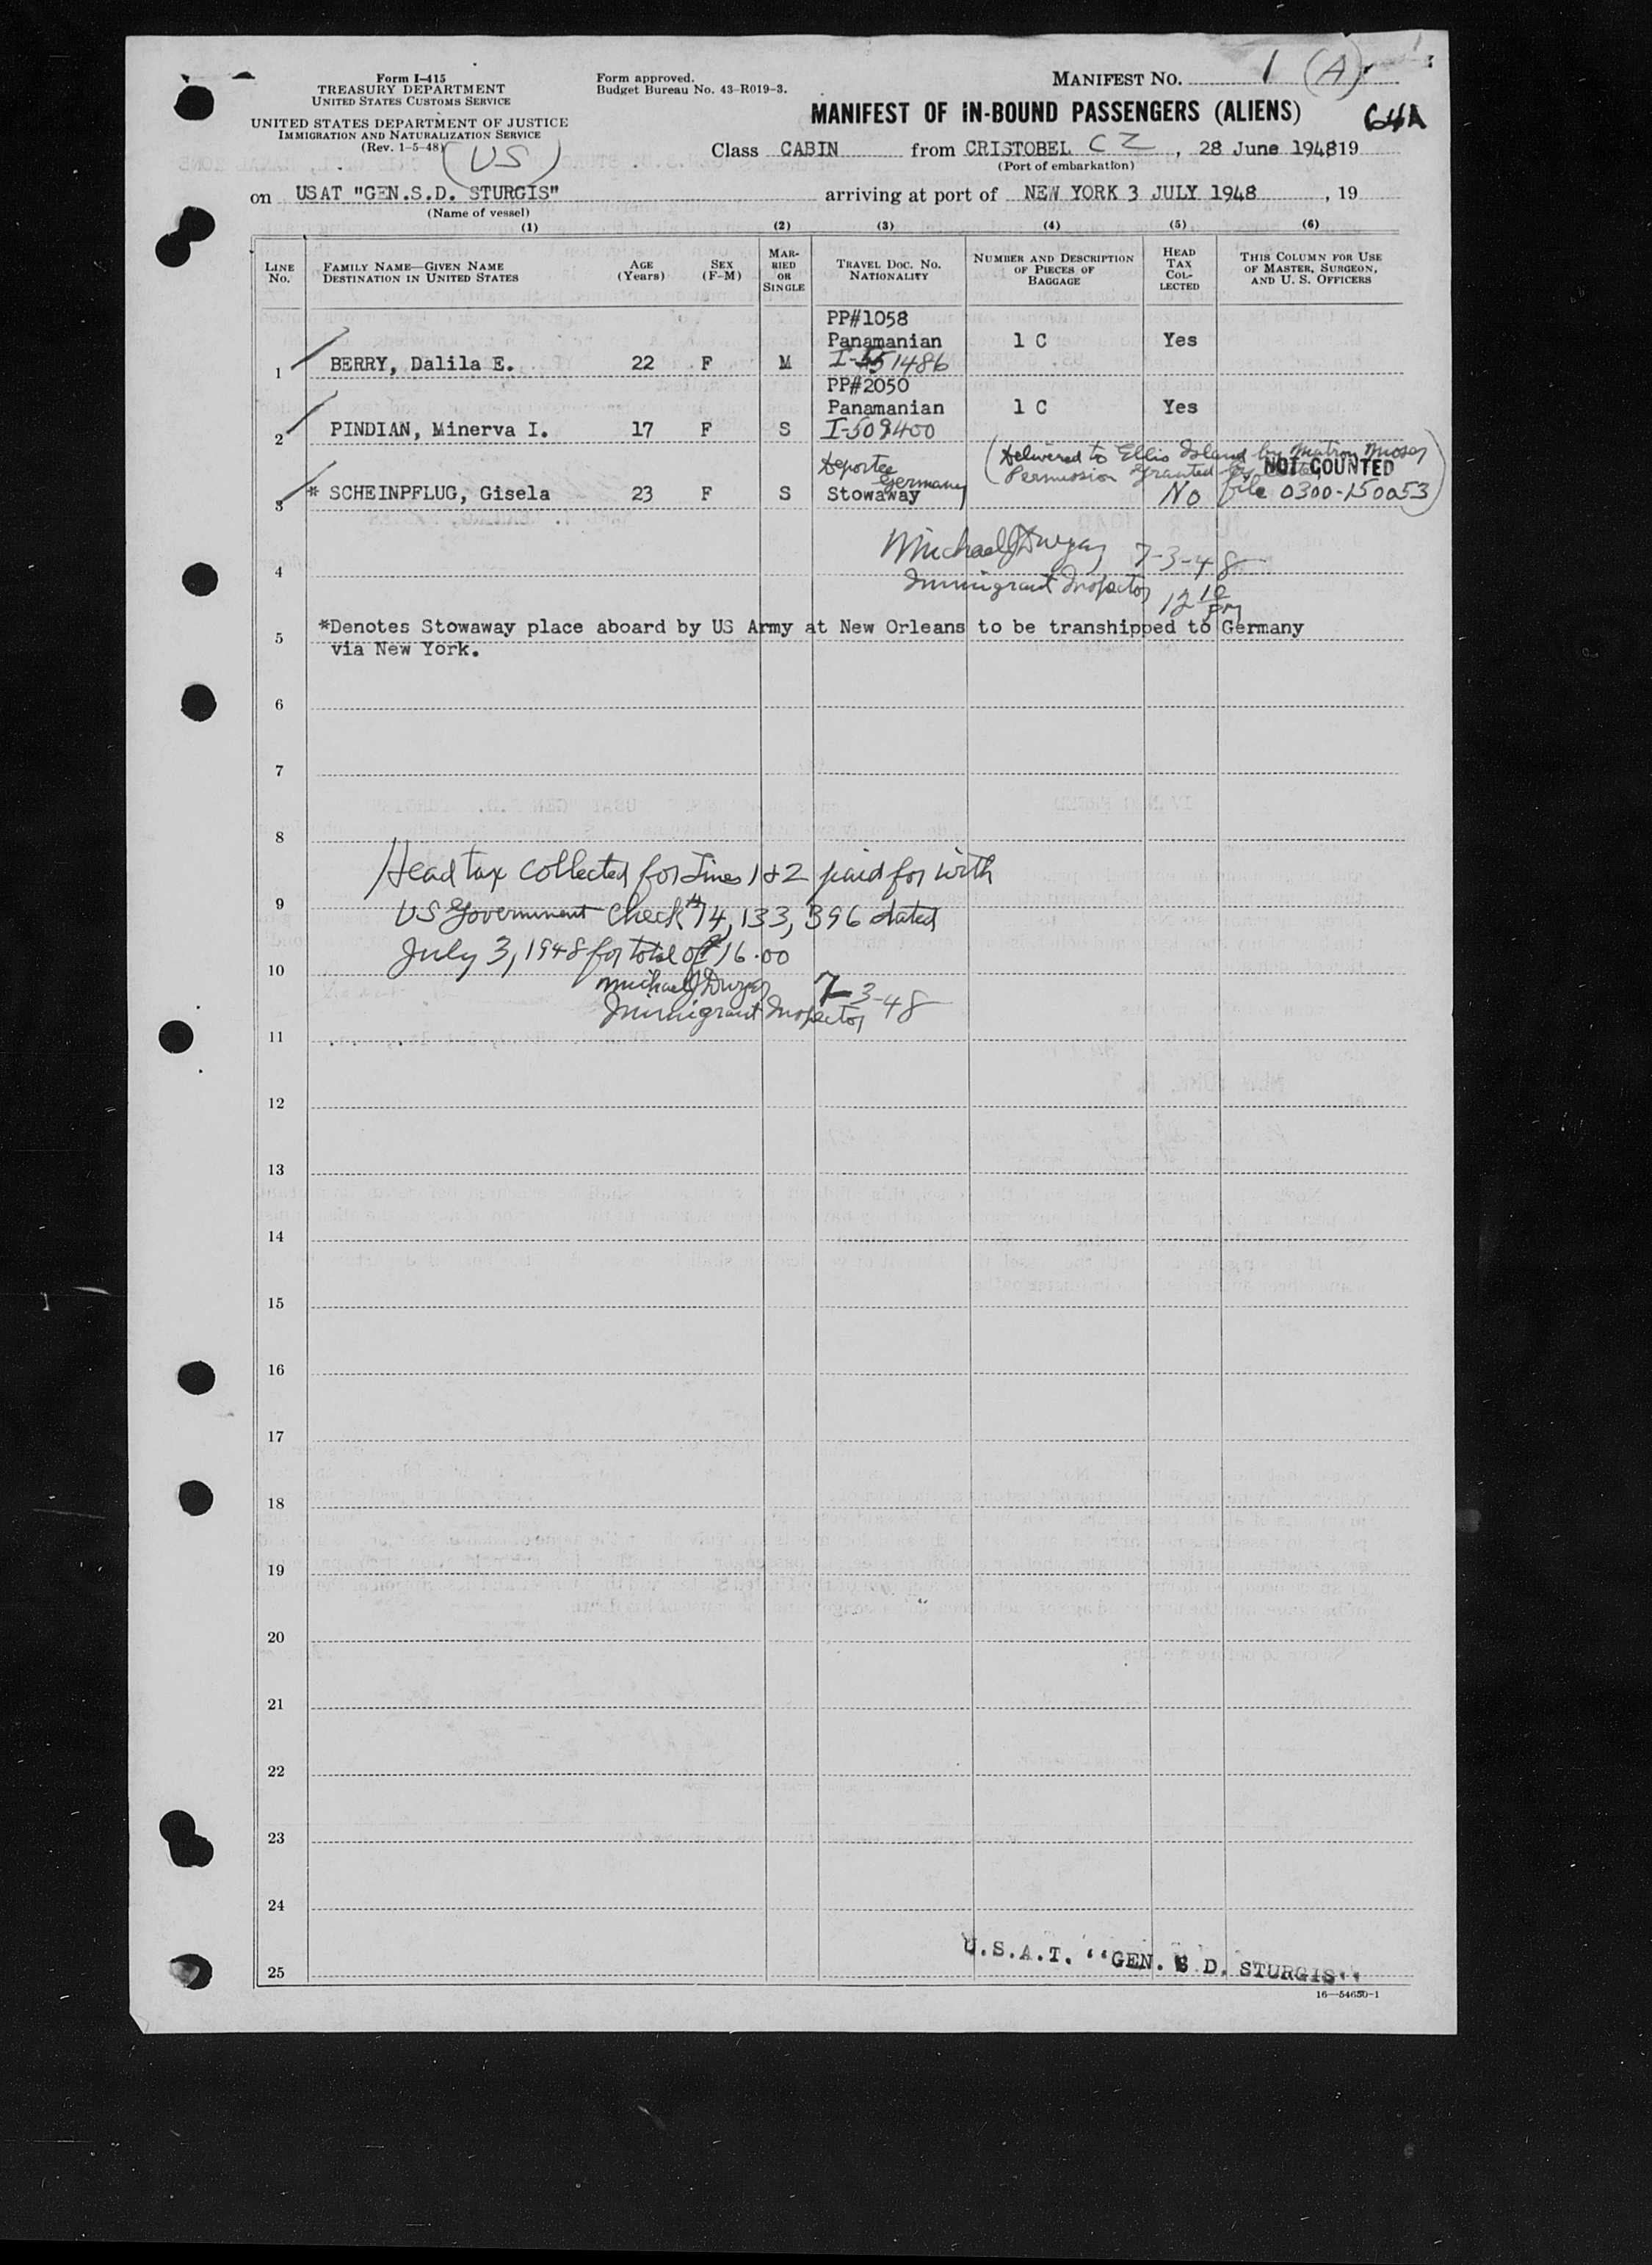 Form I-415
TREASURY DEPARTMENT
UNITED STATES CUSTOMS SERVICE
UNITED STATES DEPARTMENT OF JUSTICE
IMMIGRATION AND NATURALIZATION SERVICE
(Rev. 1-5-48)
(US)
Form approved.
Budget Bureau No. 43-R019-3.
MANIFEST NO. 1 (A)
MANIFEST OF IN-BOUND PASSENGERS (ALIENS)
64A
Class CABIN from CRISTOBEL CZ, 28 June 194819
(Port of embarkation)
on USAT "GEN.S.D. STURGIS" arriving at port of NEW YORK 3 JULY 1948, 19
(Name of vessel)
(1) (2) (3) (4) (5) (6)
LINE No. FAMILY NAME—GIVEN NAME DESTINATION IN UNITED STATES AGE (Years) SEX (F-M) MARRIED OR SINGLE TRAVEL DOC. NO. NATIONALITY NUMBER AND DESCRIPTION OF PIECES OF BAGGAGE HEAD TAX COLLECTED THIS COLUMN FOR USE OF MASTER, SURGEON, AND U. S. OFFICERS
PP#1058
Panamanian 1 C Yes
1 BERRY, Dalila E. 22 F M I-551486
PP#2050
Panamanian 1 C Yes
2 PINDIAN, Minerva I. 17 F S I-509400
Deportee Germany
(Delivered to Ellis Island by Matron
Permission granted NOT COUNTED
3 * SCHEINPFLUG, Gisela 23 F S Stowaway No file 0300-150053)
Michael J Dwyer 7-3-48
4 Immigrant Inspector 12 10 pm
5 *Denotes Stowaway place aboard by US Army at New Orleans to be transhipped to Germany
via New York.
6
7
8
Head tax collected for Lines 1 & 2 paid for with
9 US Government Check # 74,133,396 dated
July 3, 1948 for total of $16.00
10 Michael J Dwyer 7-3-48
Immigrant Inspector
11
12
13
14
15
16
17
18
19
20
21
22
23
24
25
U.S.A.T. "GEN. S D. STURGIS"
16—54650-1